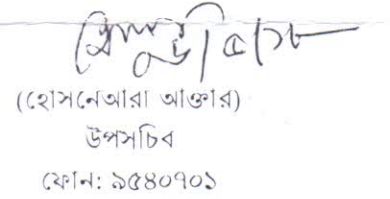 (হোসনেআরা আক্তার)
উপসচিব
ফোন: ৯৫৪০৭০১